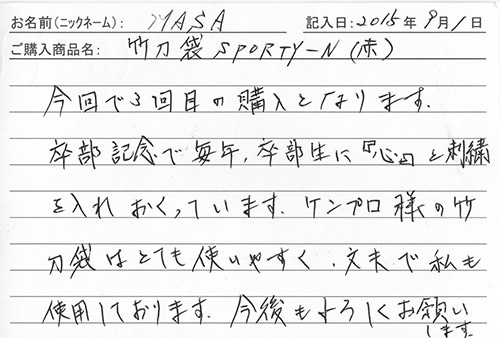 お名前(ニックネーム): MASA 記入日: 2015年 9月 1日
ご購入商品名: 竹刀袋 SPORTY-N (赤)
今回で3回目の購入となります.
卒部記念で毎年、卒部生に『心』と刺繍
を入れおくっています. ケンプロ様の竹
刀袋はとても使いやすく、丈夫で私も
使用しております. 今後もよろしくお願い
します